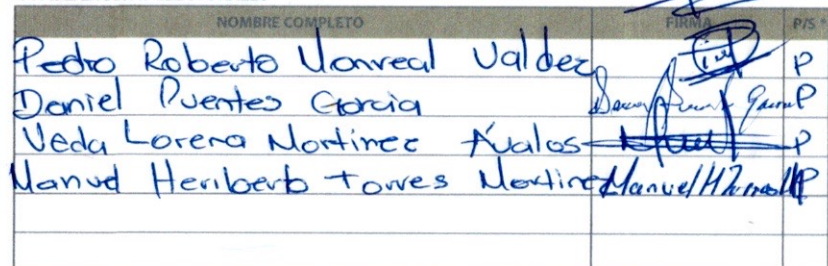 NOMBRE COMPLETO FIRMA P/S *
Pedro Roberto Monreal Valdez P
Daniel Puentes Garcia P
Veda Lorena Martinez Ávalos P
Manuel Heriberto Torres Martinez Manuel H Torres M P